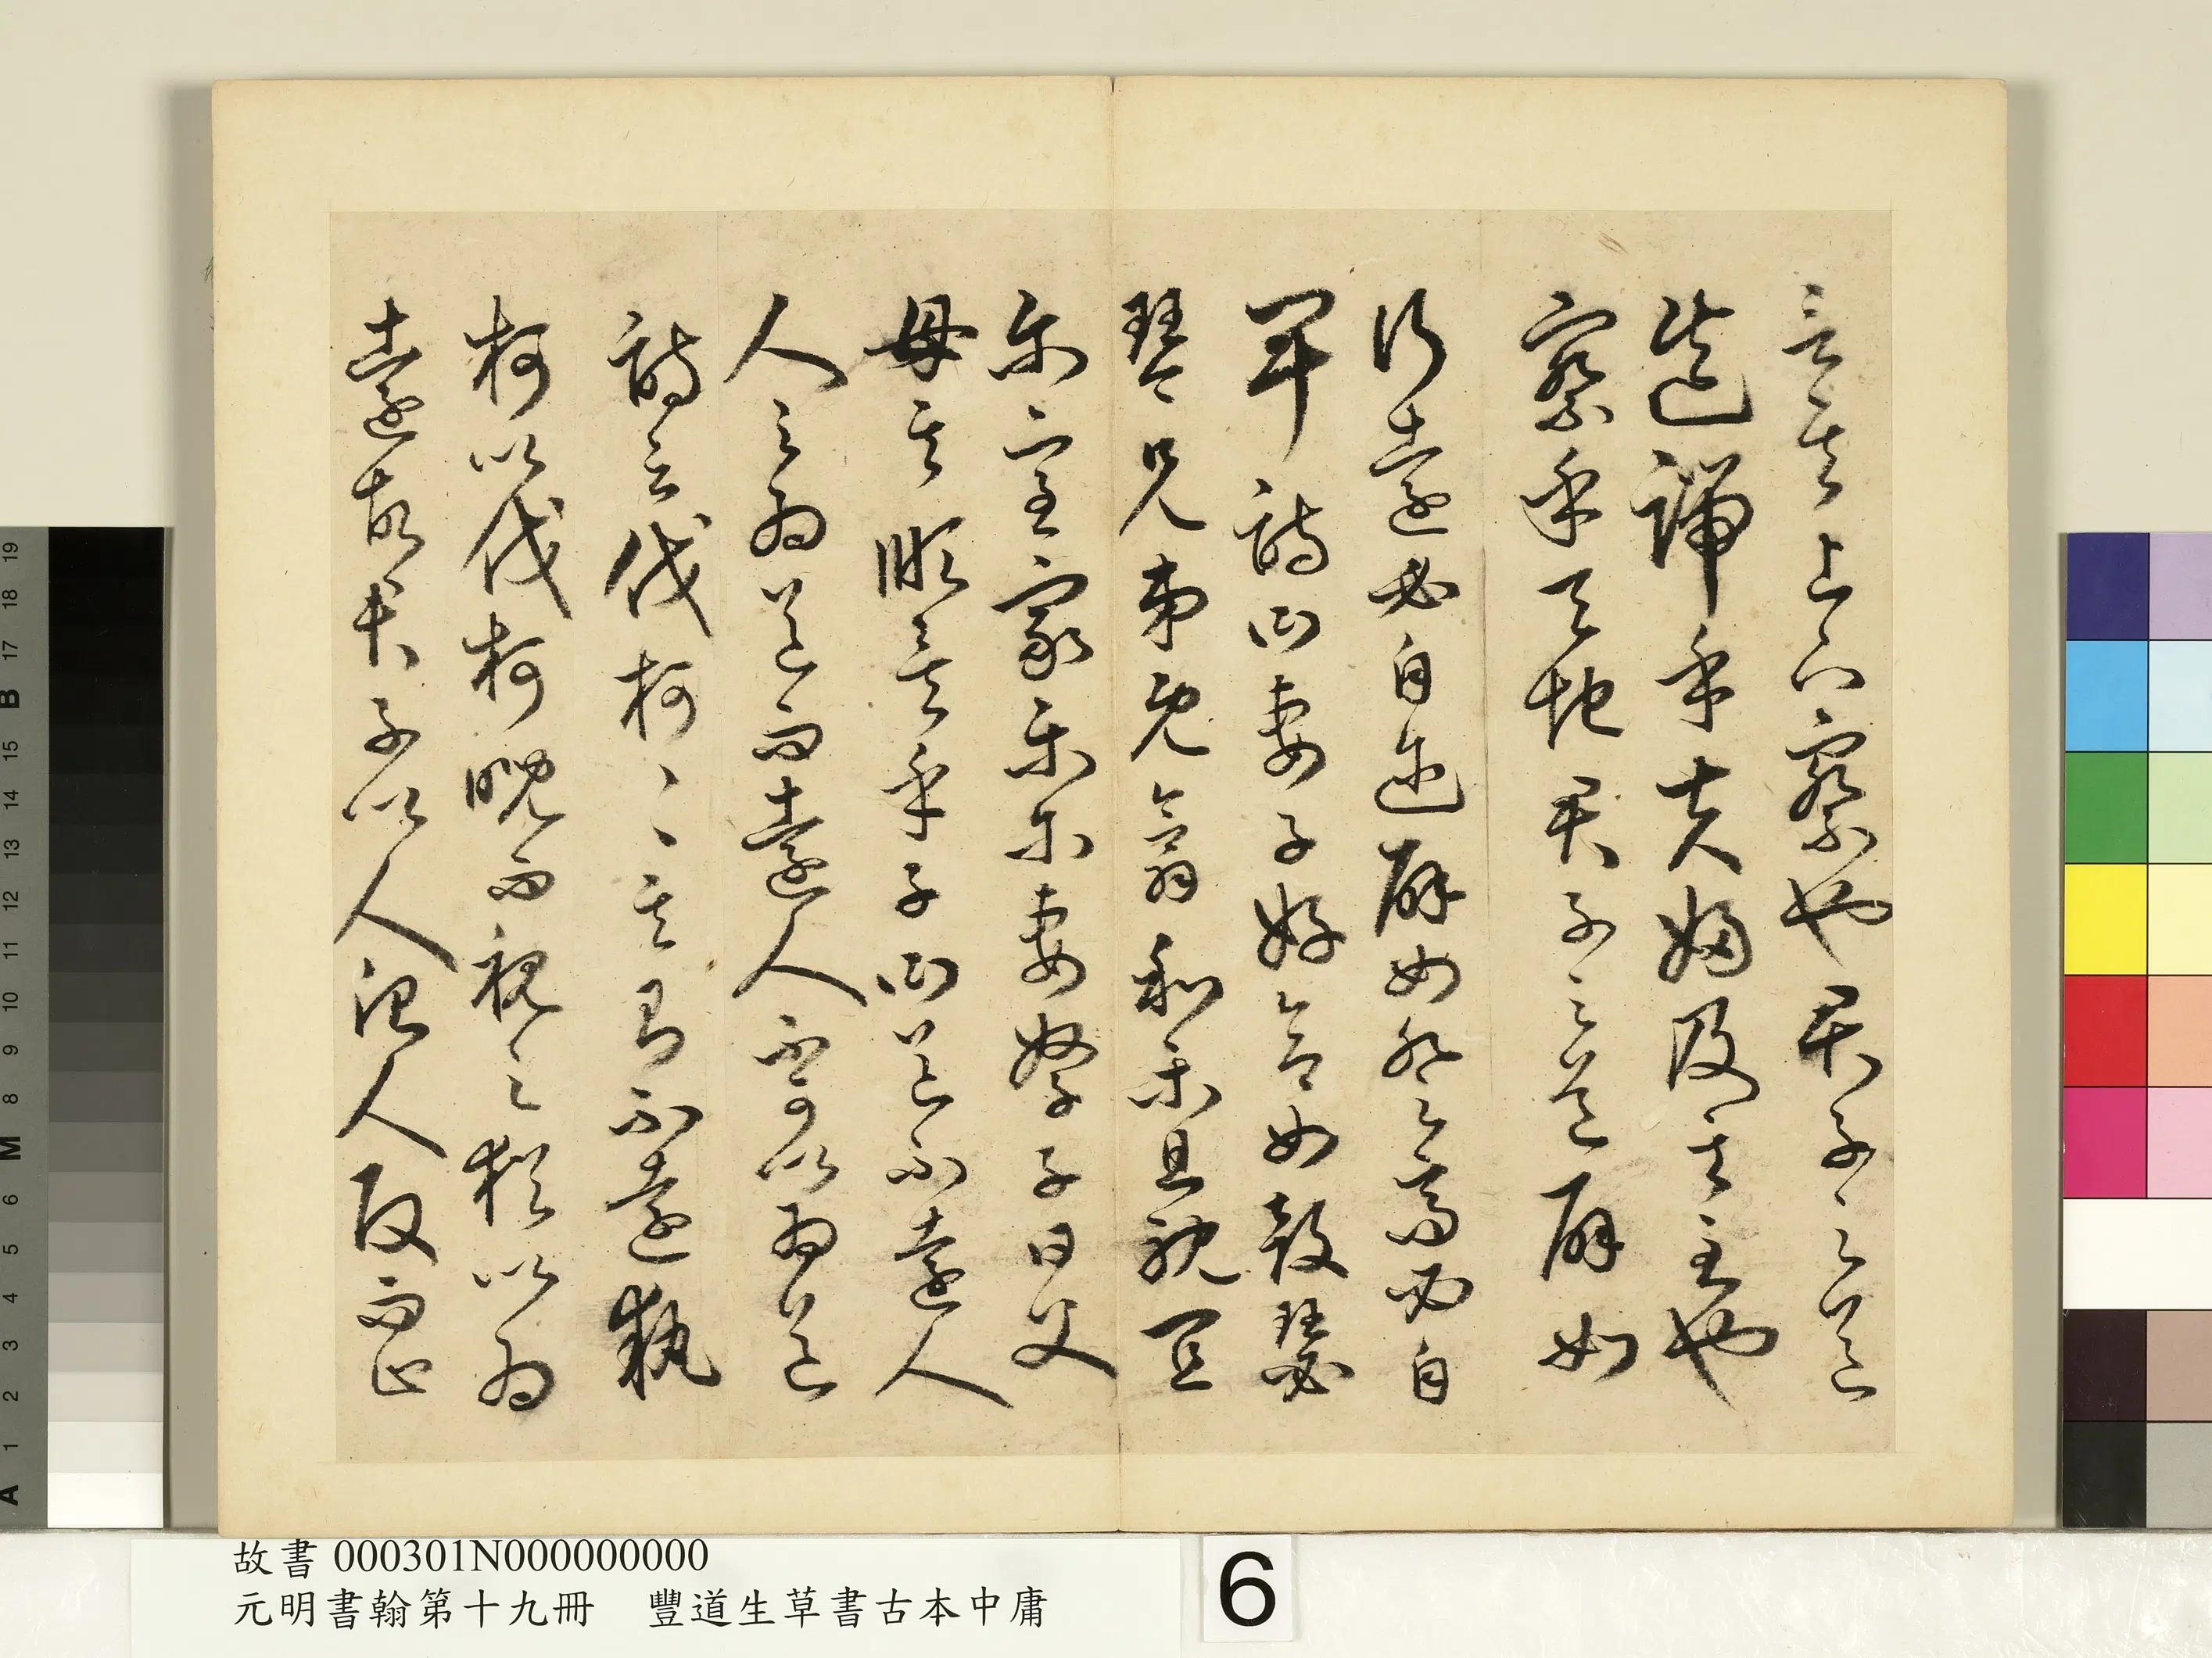 言其上下察也君子之道
造端乎夫婦及其至也
察乎天地君子之道辟如
行遠必自邇辟如登高必自
卑詩曰妻子好合如鼓瑟
琴兄弟既翕和樂且耽宜
爾室家樂爾妻孥子曰父
母其順矣乎子曰道不遠人
人之為道而遠人不可以為道
詩云伐柯〻〻其則不遠執
柯以伐柯睨而視之猶以為
遠故君子以人治人改而止
故書 000301N000000000
元明書翰第十九冊 豐道生草書古本中庸
6
A 1 2 3 4 5 6 M 8 9 10 11 12 13 14 15 B 17 18 19